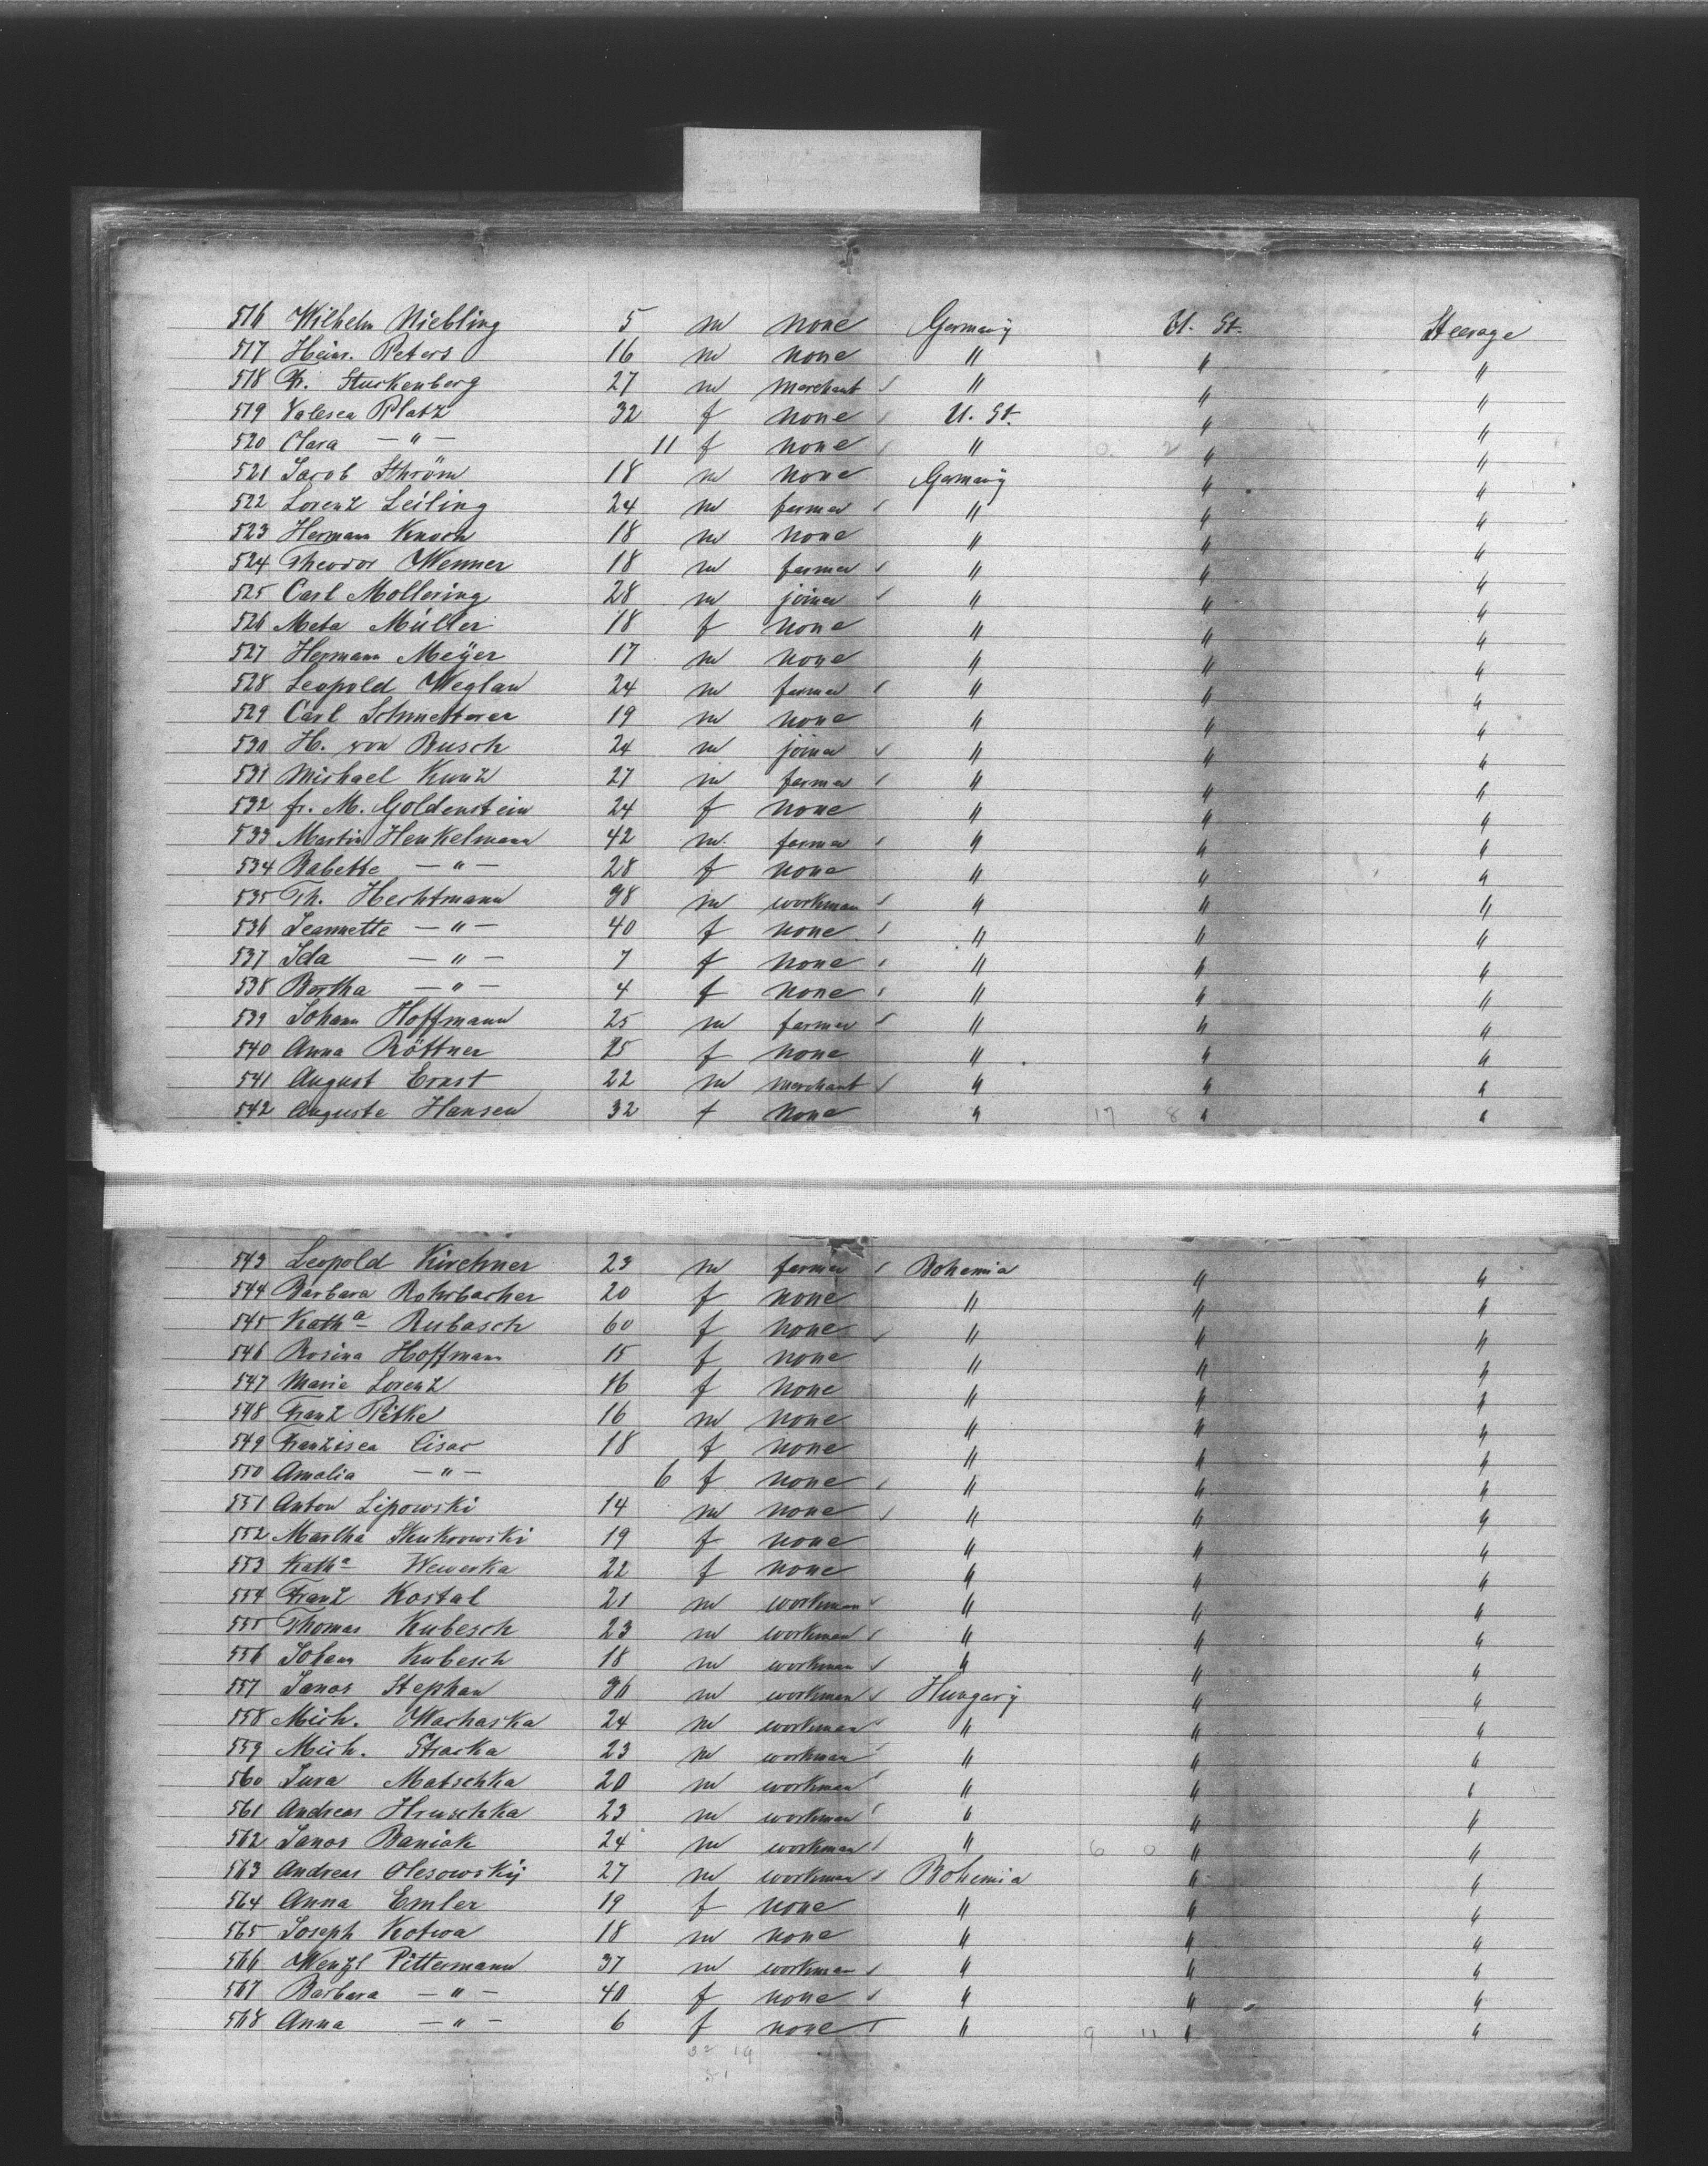 516 Wilhelm Niebling 5 m none Germany U. St. Steerage
517 Heinr. Peters 16 m none " " "
518 Fr. Stuckenberg 27 m merchant " " "
519 Valesca Platz 32 f none U. St. " "
520 Clara — " — 11 f none " " "
521 Jacob Ströw 18 m none Germany " "
522 Lorenz Leiling 24 m farmer " " "
523 Hermann Knoch 18 m none " " "
524 Theodor Wenner 18 m farmer " " "
525 Carl Mollering 28 m joiner " " "
526 Meta Müller 18 f none " " "
527 Hermann Meÿer 17 m none " " "
528 Leopold Weglau 24 m farmer " " "
529 Carl Schmetterer 19 m none " " "
530 H. von Busch 24 m joiner " " "
531 Michael Kunz 27 m farmer " " "
532 fr. M. Goldenstein 24 f none " " "
533 Martin Henkelmann 42 m farmer " " "
534 Babette — " — 28 f none " " "
535 Th. Hechtmann 38 m workman " " "
536 Jeannette — " — 40 f none " " "
537 Ida — " — 7 f none " " "
538 Bertha — " — 4 f none " " "
539 Johann Hoffmann 25 m farmer " " "
540 Anna Röttner 25 f none " " "
541 August Ernst 22 m merchant " " "
542 Auguste Hansen 32 f none " 17 8 " "
543 Leopold Kirchner 23 m farmer Bohemia " "
544 Barbara Rohrbacher 20 f none " " "
545 Katha Rubasch 60 f none " " "
546 Rosina Hoffmann 15 f none " " "
547 Maria Lorenz 16 f none " " "
548 Franz Pitke 16 m none " " "
549 Franzisca Cisar 18 f none " " "
550 Amalia — " — 6 f none " " "
551 Anton Lipowski 14 m none " " "
552 Martha Skukrowski 19 f none " " "
553 Katha Wewerka 22 f none " " "
554 Franz Kostal 21 m workman " " "
555 Thomas Kubesch 23 m workman " " "
556 Johann Kubesch 18 m workman " " "
557 Janos Stephan 36 m workman Hungary " "
558 Mich. Wachaska 24 m workman " " "
559 Mich. Stracka 23 m workman " " "
560 Jura Matschka 20 m workman " " "
561 Andreas Hruschka 23 m workman " " "
562 Janos Baniak 24 m workman " 6 0 " "
563 Andreas Olesowskÿ 27 m workman Bohemia " "
564 Anna Emler 19 f none " " "
565 Joseph Kotwa 18 m none " " "
566 Wenzl Pittermann 37 m workman " " "
567 Barbara — " — 40 f none " " "
568 Anna — " — 6 f none " 9 11 " "
32 19
51